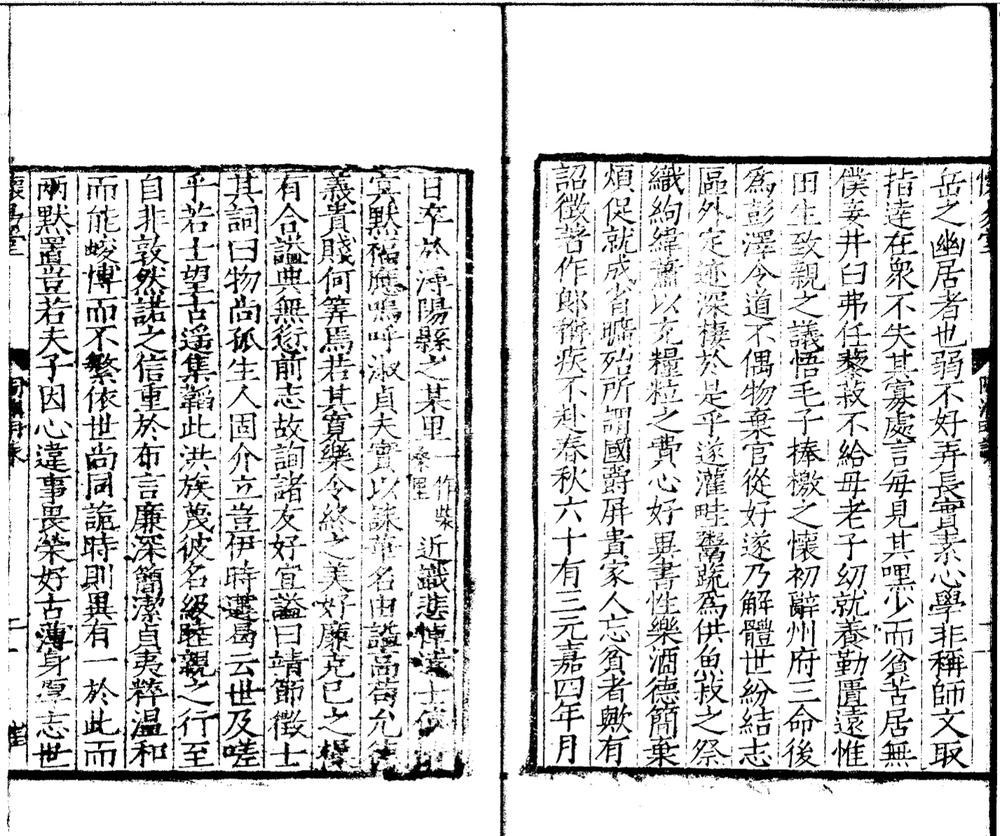 岳之幽居者也弱不好弄長實素心學非稱師文取
指達在衆不失其寡處言每見其嘿少而貧苦居無
僕妾井臼弗任藜菽不給母老子幼就養勤匱遠惟
田生致親之議悟毛子捧檄之懷初辭州府三命後
為彭澤令道不偶物棄官從好遂乃解體世紛結志
區外定迹深棲於是乎遂灌畦鬻蔬為供魚菽之祭
織絢緯蕭以充糧粒之費心好異書性樂酒德簡棄
煩促就成省曠殆所謂國爵屏貴家人忘貧者歟有
詔徵著作郎稱疾不赴春秋六十有三元嘉四年月
日卒於潯陽縣之某里一作柴桑里近識悲悼遠士傷
冥默福應嗚呼淑貞夫實以誄華名由諡高苟允
義貴賤何筭焉若其寬樂令終之美好廉克己之操
有合諡典無愆前志故詢諸友好宜諡曰靖節徵士
其詞曰物尚孤生人固介立豈伊時遘曷云世及嗟
乎若士望古遥集韜此洪族蔑彼名級睦親之行至
自非敦然諾之信重於布言廉深簡潔貞夷粹温和
而能峻博而不繁依世尚同詭時則異有一於此而
兩默置豈若夫子因心違事畏榮好古薄身厚志世